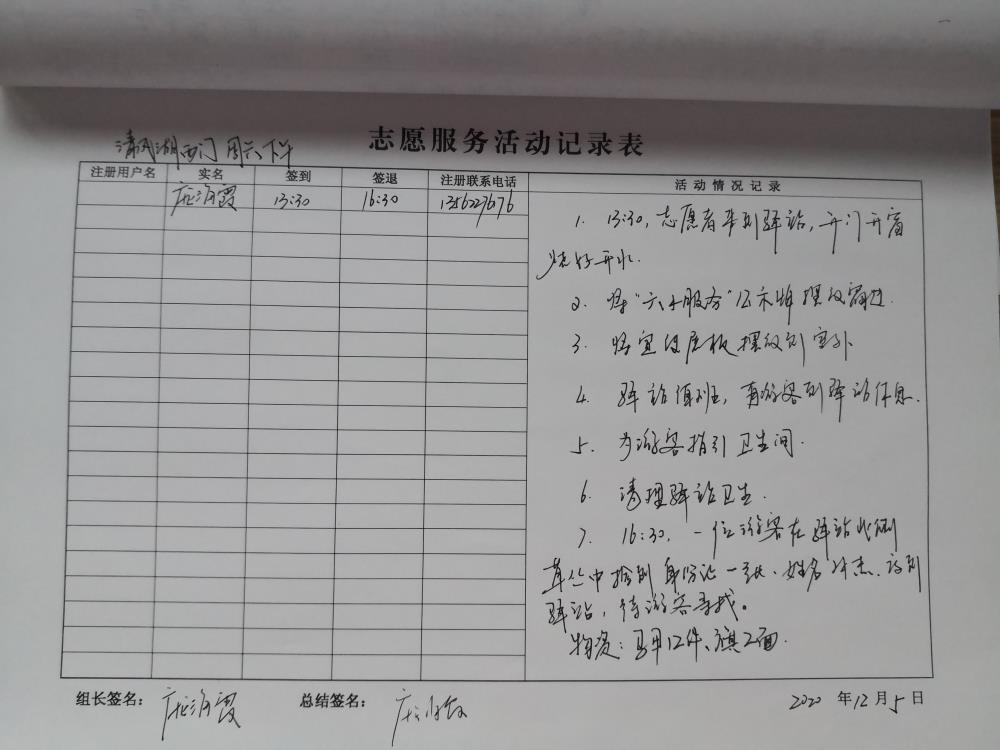 志愿服务活动记录表
清风湖西门 周六下午
注册用户名 实名 签到 签退 注册联系电话 活动情况记录
庞海霞 13:30 16:30
1. 13:30,志愿者来到驿站,开门开窗
烧好开水.
2. 将"六个服务"公示牌摆放窗边.
3. 将宣传展板摆放到室外
4. 驿站值班,有游客到驿站休息.
5. 为游客指引卫生间.
6. 清理驿站卫生.
7. 16:30,一位游客在驿站北侧
草丛中捡到身份证一张、姓名许杰.放到
驿站,待游客寻找。
物资:马甲12件、旗2面.
组长签名: 庞海霞 总结签名: 2020 年12月5日